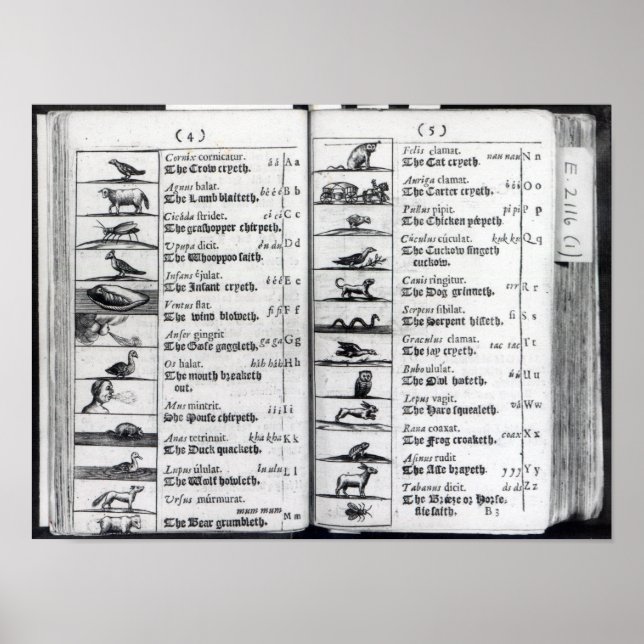 (4)
Cornix cornicatur. á á A a
The Crow cryeth.
Agnus balat. bé é é B b
The Lamb blaiteth.
Cicáda stridet. cì cì C c
The grashopper chirpeth.
Upupa dicit. du du D d
The Whooppoo saith.
Infans éjulat. é é é E e
The Infant cryeth.
Ventus flat. fi fi F f
The wind bloweth.
Anser gingrit. ga ga G g
The Goose gaggleth.
Os halat. háh háh H h
The mouth breaketh
out.
Mus mintrit. í í í I i
The Mouse chirpeth.
Anas tetrinnit. kha kha K k
The Duck quacketh.
Lupus úlulat. lu ulu L l
The Wolf howleth.
Ursus múrmurat.
mum mum
The Bear grumbleth. M m
(5)
Felis clamat. nau nau N n
The Cat cryeth.
Auriga clamat. ó ó ó O o
The Carter cryeth.
Pullus pipit. pi pi P p
The Chicken peepeth.
Cúculus cúculat. kuk ku Q q
The Cuckow singeth
cuckow.
Canis ringitur. err R r
The Dog grinneth.
Serpens sibilat. si S s
The Serpent hisseth.
Graculus clamat. tac tac T t
The jay cryeth.
Bubo ululat. ú ú U u
The Owl hooteth.
Lepus vagit. vá W w
The Hare squealeth.
Rana coaxat. coax X x
The Frog croaketh.
Asinus rudit. y y y Y y
The Asse brayeth.
Tabanus dicit. ds ds Z z
The Breeze or Horse-
flie saith.
B 3
E. 2116 (1)